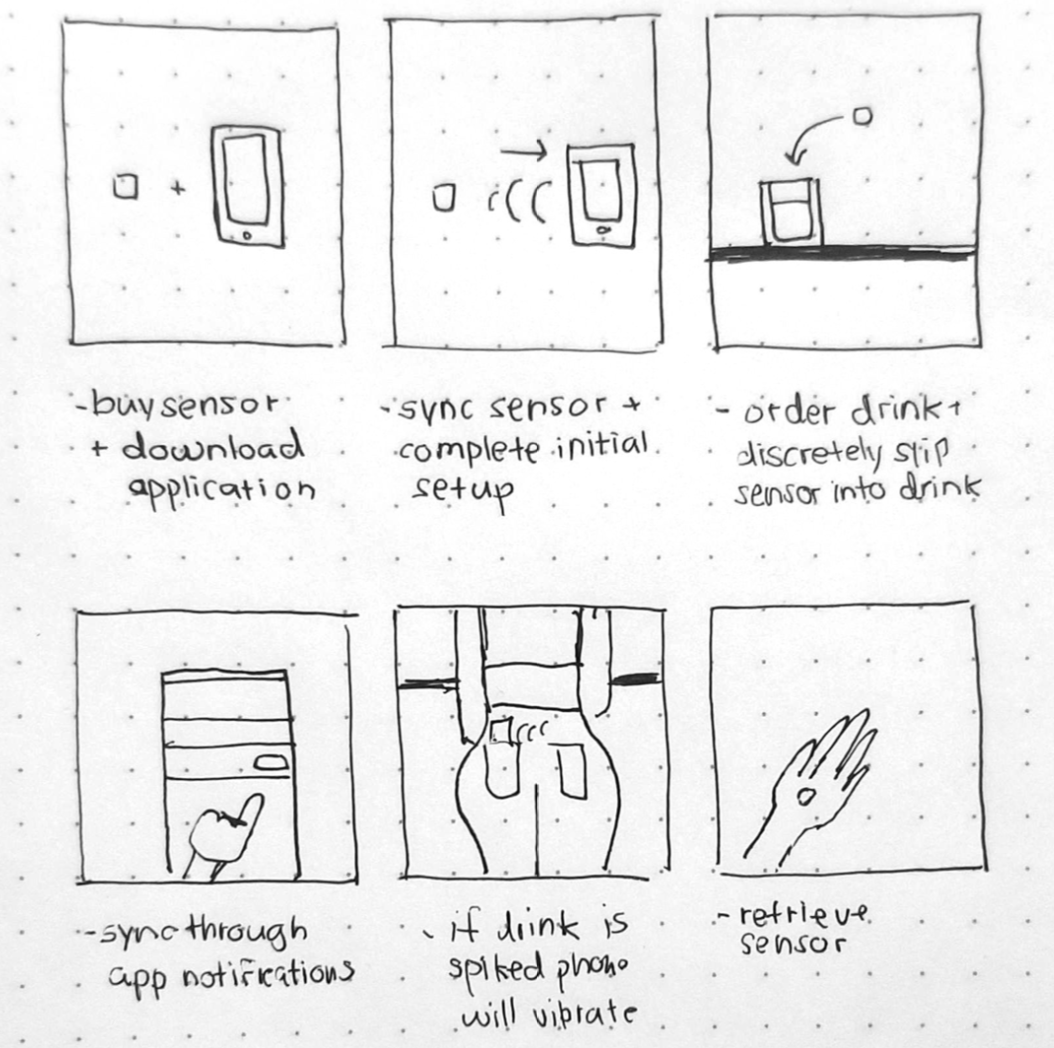 -buy sensor
+ download
application
-sync sensor +
complete initial
setup
- order drink +
discretely slip
sensor into drink
-sync through
app notifications
- if drink is
spiked phone
will vibrate
- retrieve
sensor